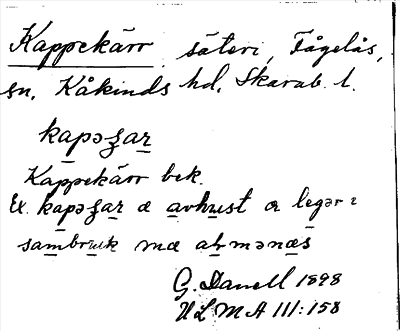 Kappekärr säteri, Fågelås,
sn, Kåkinds hd, Skarab. l.
kapəʒar
Kappekärr bek.
Ex. kapəʒar æ avhust a legər i
sambruk mæ almənæs
G. Danell 1898
ULMA 111:158